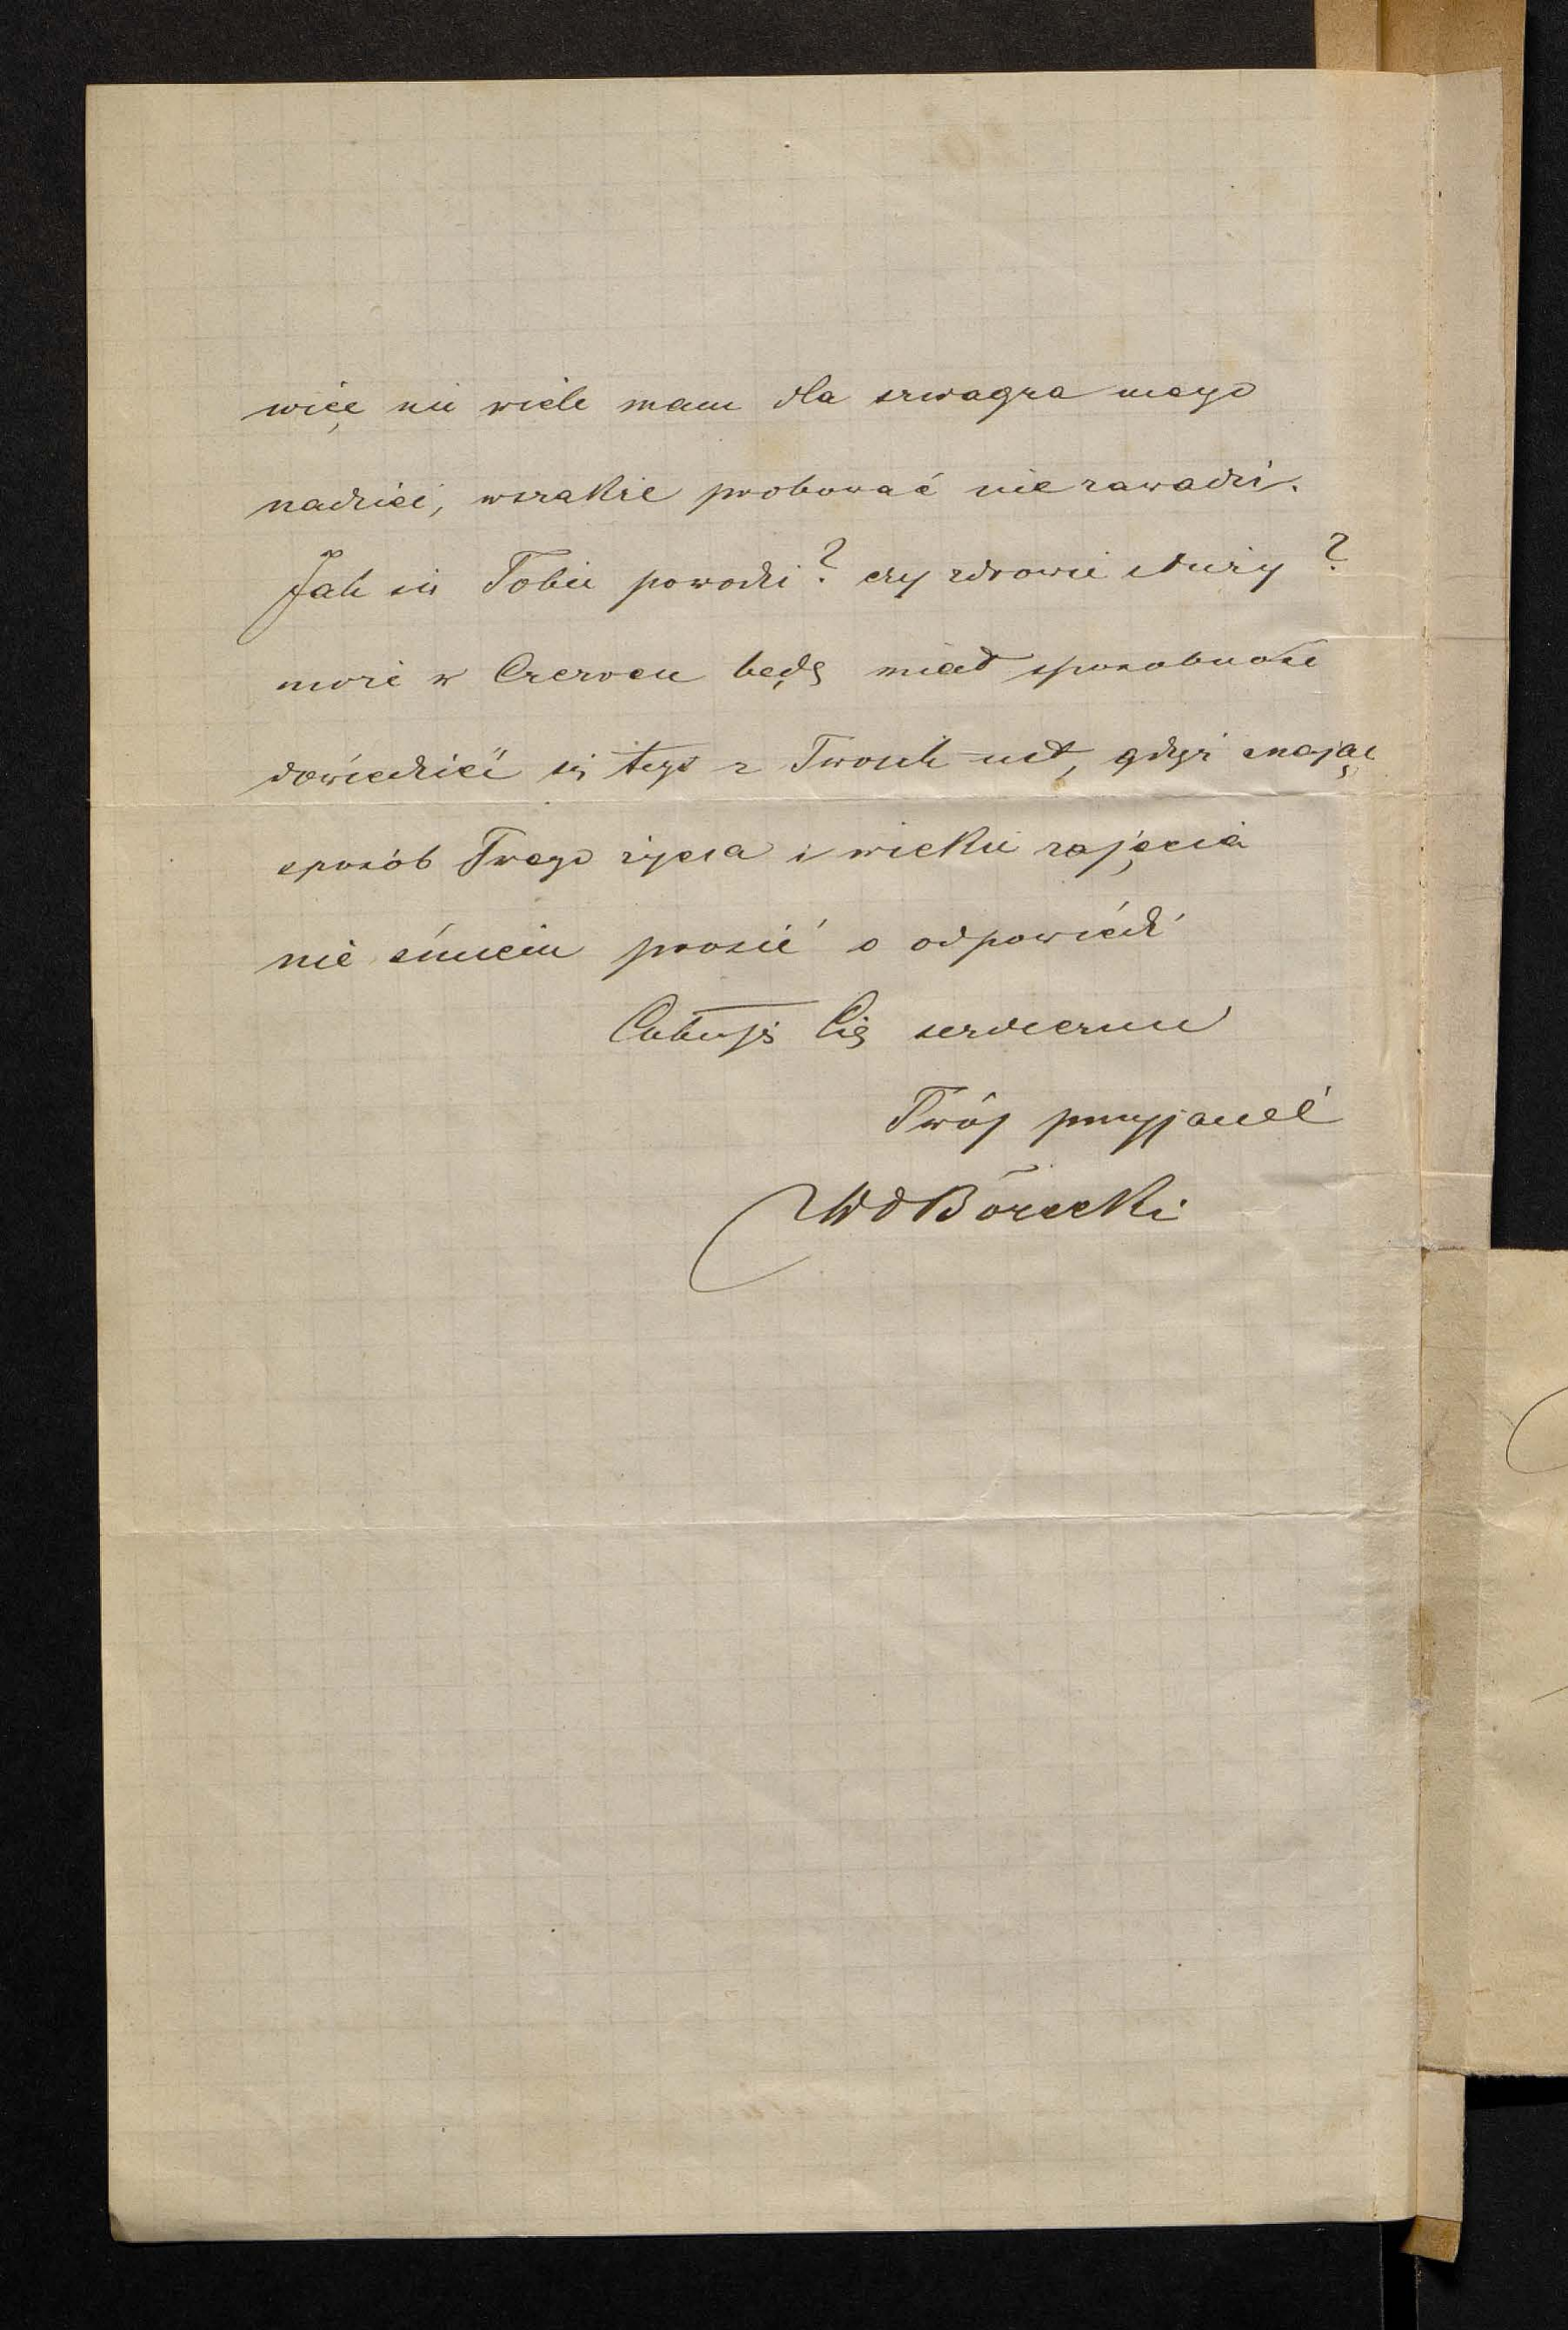 więc nie wiele mam dla szwagra mego
nadziei, wszakże probować nie zawadzi.
Jak się Tobie powodzi? czy zdrowie służy?
może w Czerwcu będę miał sposobność
dowiedzieć się tego z Twoich ust, gdyż znając
sposób Twego życia i wielkie zajęcia
nie śmiem prosić o odpowiedź
Całuję Cię serdecznie
Twój przyjaciel
Borecki